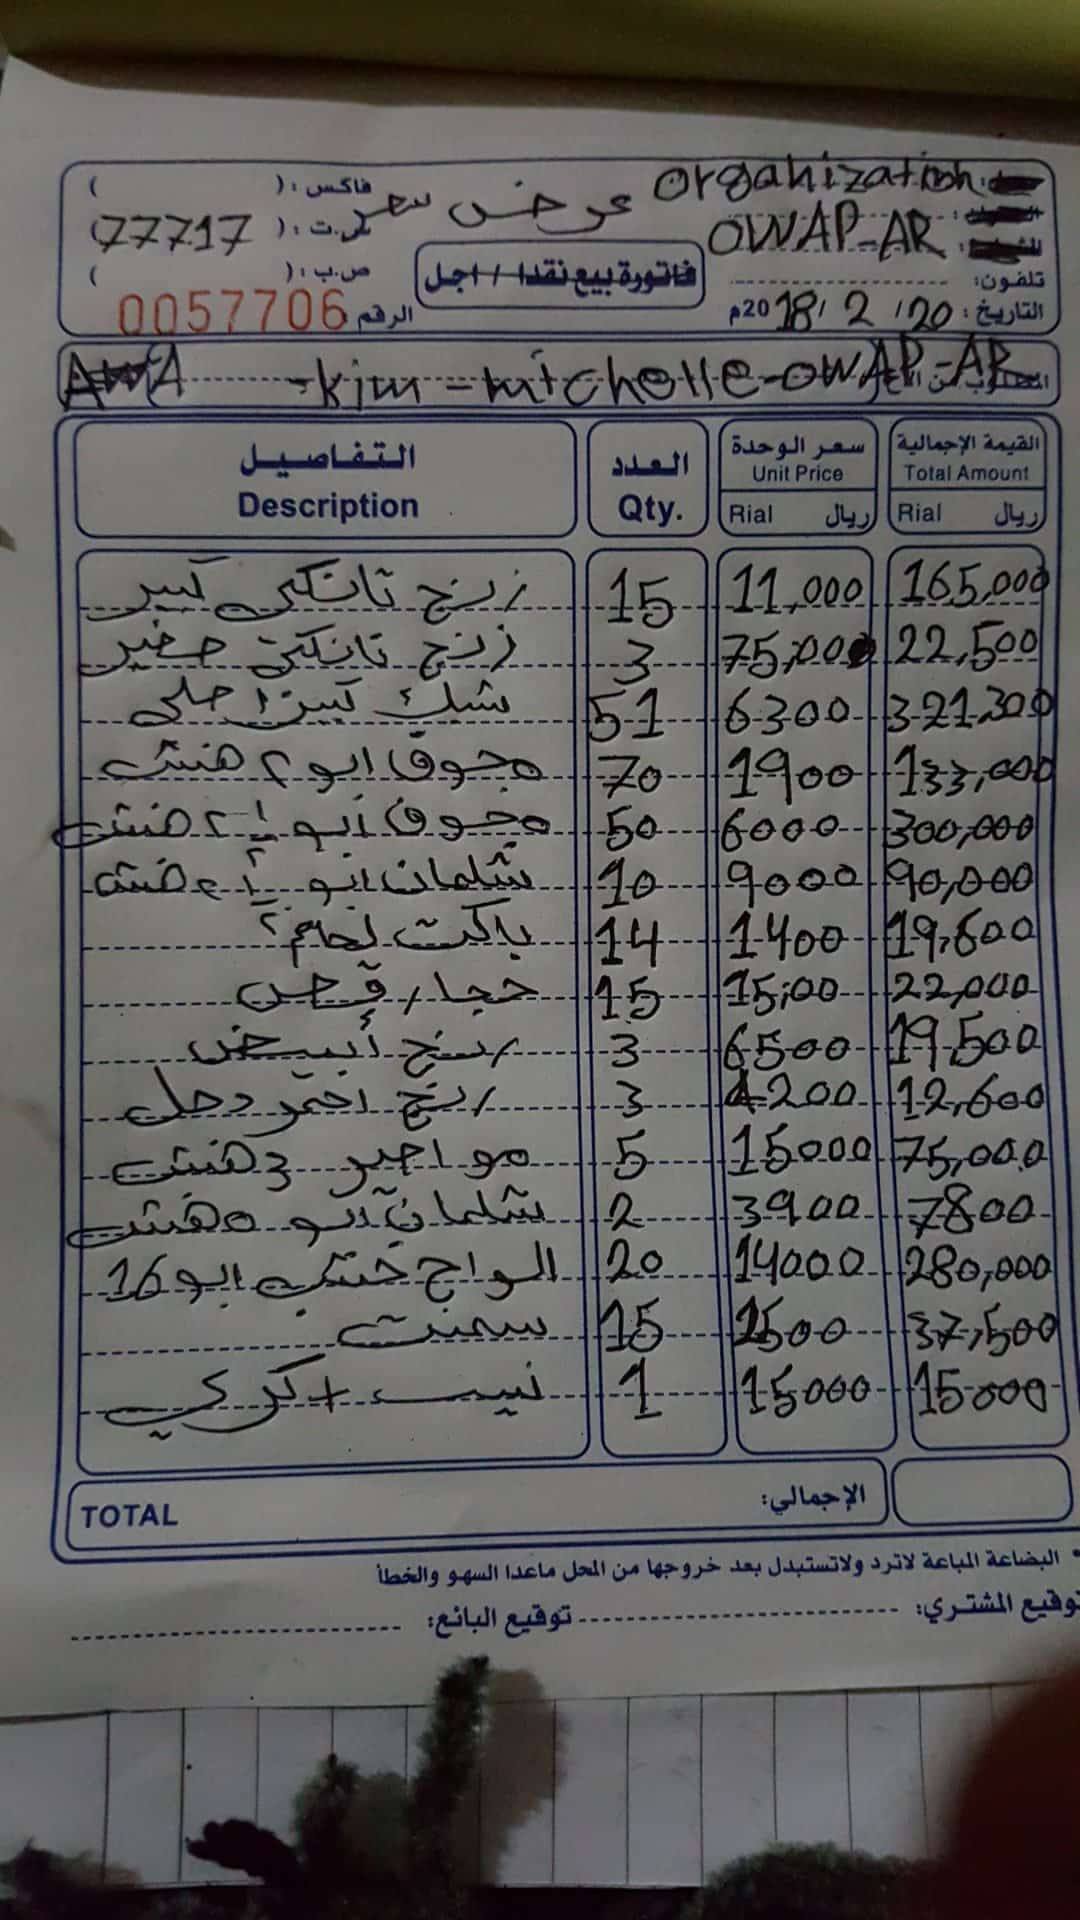 organization فاكس : ( )
OWAP-AR عرض سعر س.ت : ( 77717 )
تلفون: فاتورة بيع نقدا / اجل ص.ب : ( )
التاريخ : 20 / 2 / 2018م الرقم 0057706
AWA -kim-mitchelle-OWAP-AR
التفاصيل العدد سعر الوحدة القيمة الإجمالية
Description Qty. Unit Price Total Amount
Rial ريال Rial ريال
زنج تانكي كبير 15 11,000 165,000
زنج تانكي صغير 3 75,000 22,500
شبك 51 6300 321,300
مجوف ابو ٢ هنش 70 1900 133,000
مجوف ابو هنش 50 6000 300,000
شلمان ابو هنش 10 9000 90,000
باكت لحام 14 1400 19,600
حجار قص 15 15,00 22,000
رنج أبيض 3 6500 19,500
رنج احمر 3 4200 12,600
مواصير 3 هنش 5 15000 75,000
شلمان ابو ٥ هنش 2 3900 7800
الواح خشب ابو 16 20 14000 280,000
سمنت 15 2500 37,500
نيس + كري 1 15000 15000
TOTAL الإجمالي:
* البضاعة المباعة لاترد ولاتستبدل بعد خروجها من المحل ماعدا السهو والخطأ
توقيع المشتري: توقيع البائع: